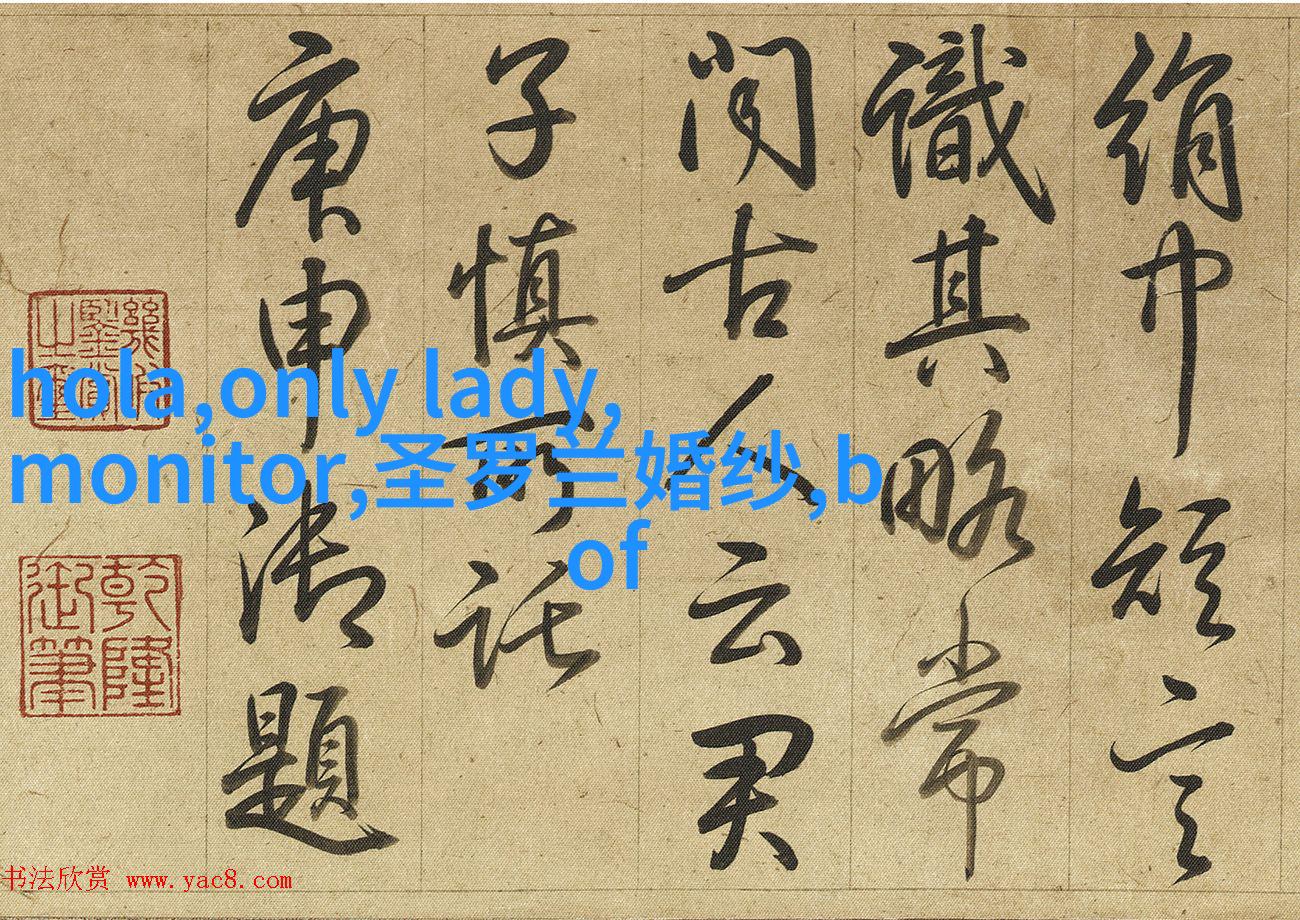 絹中短言
識其略常
聞古人云君
子慎所託
庚申御題
幾暇鑒賞之璽
乾隆御筆
hola,only lady,
monitor,圣罗兰婚纱,b
of
书法欣赏 www.yac8.com